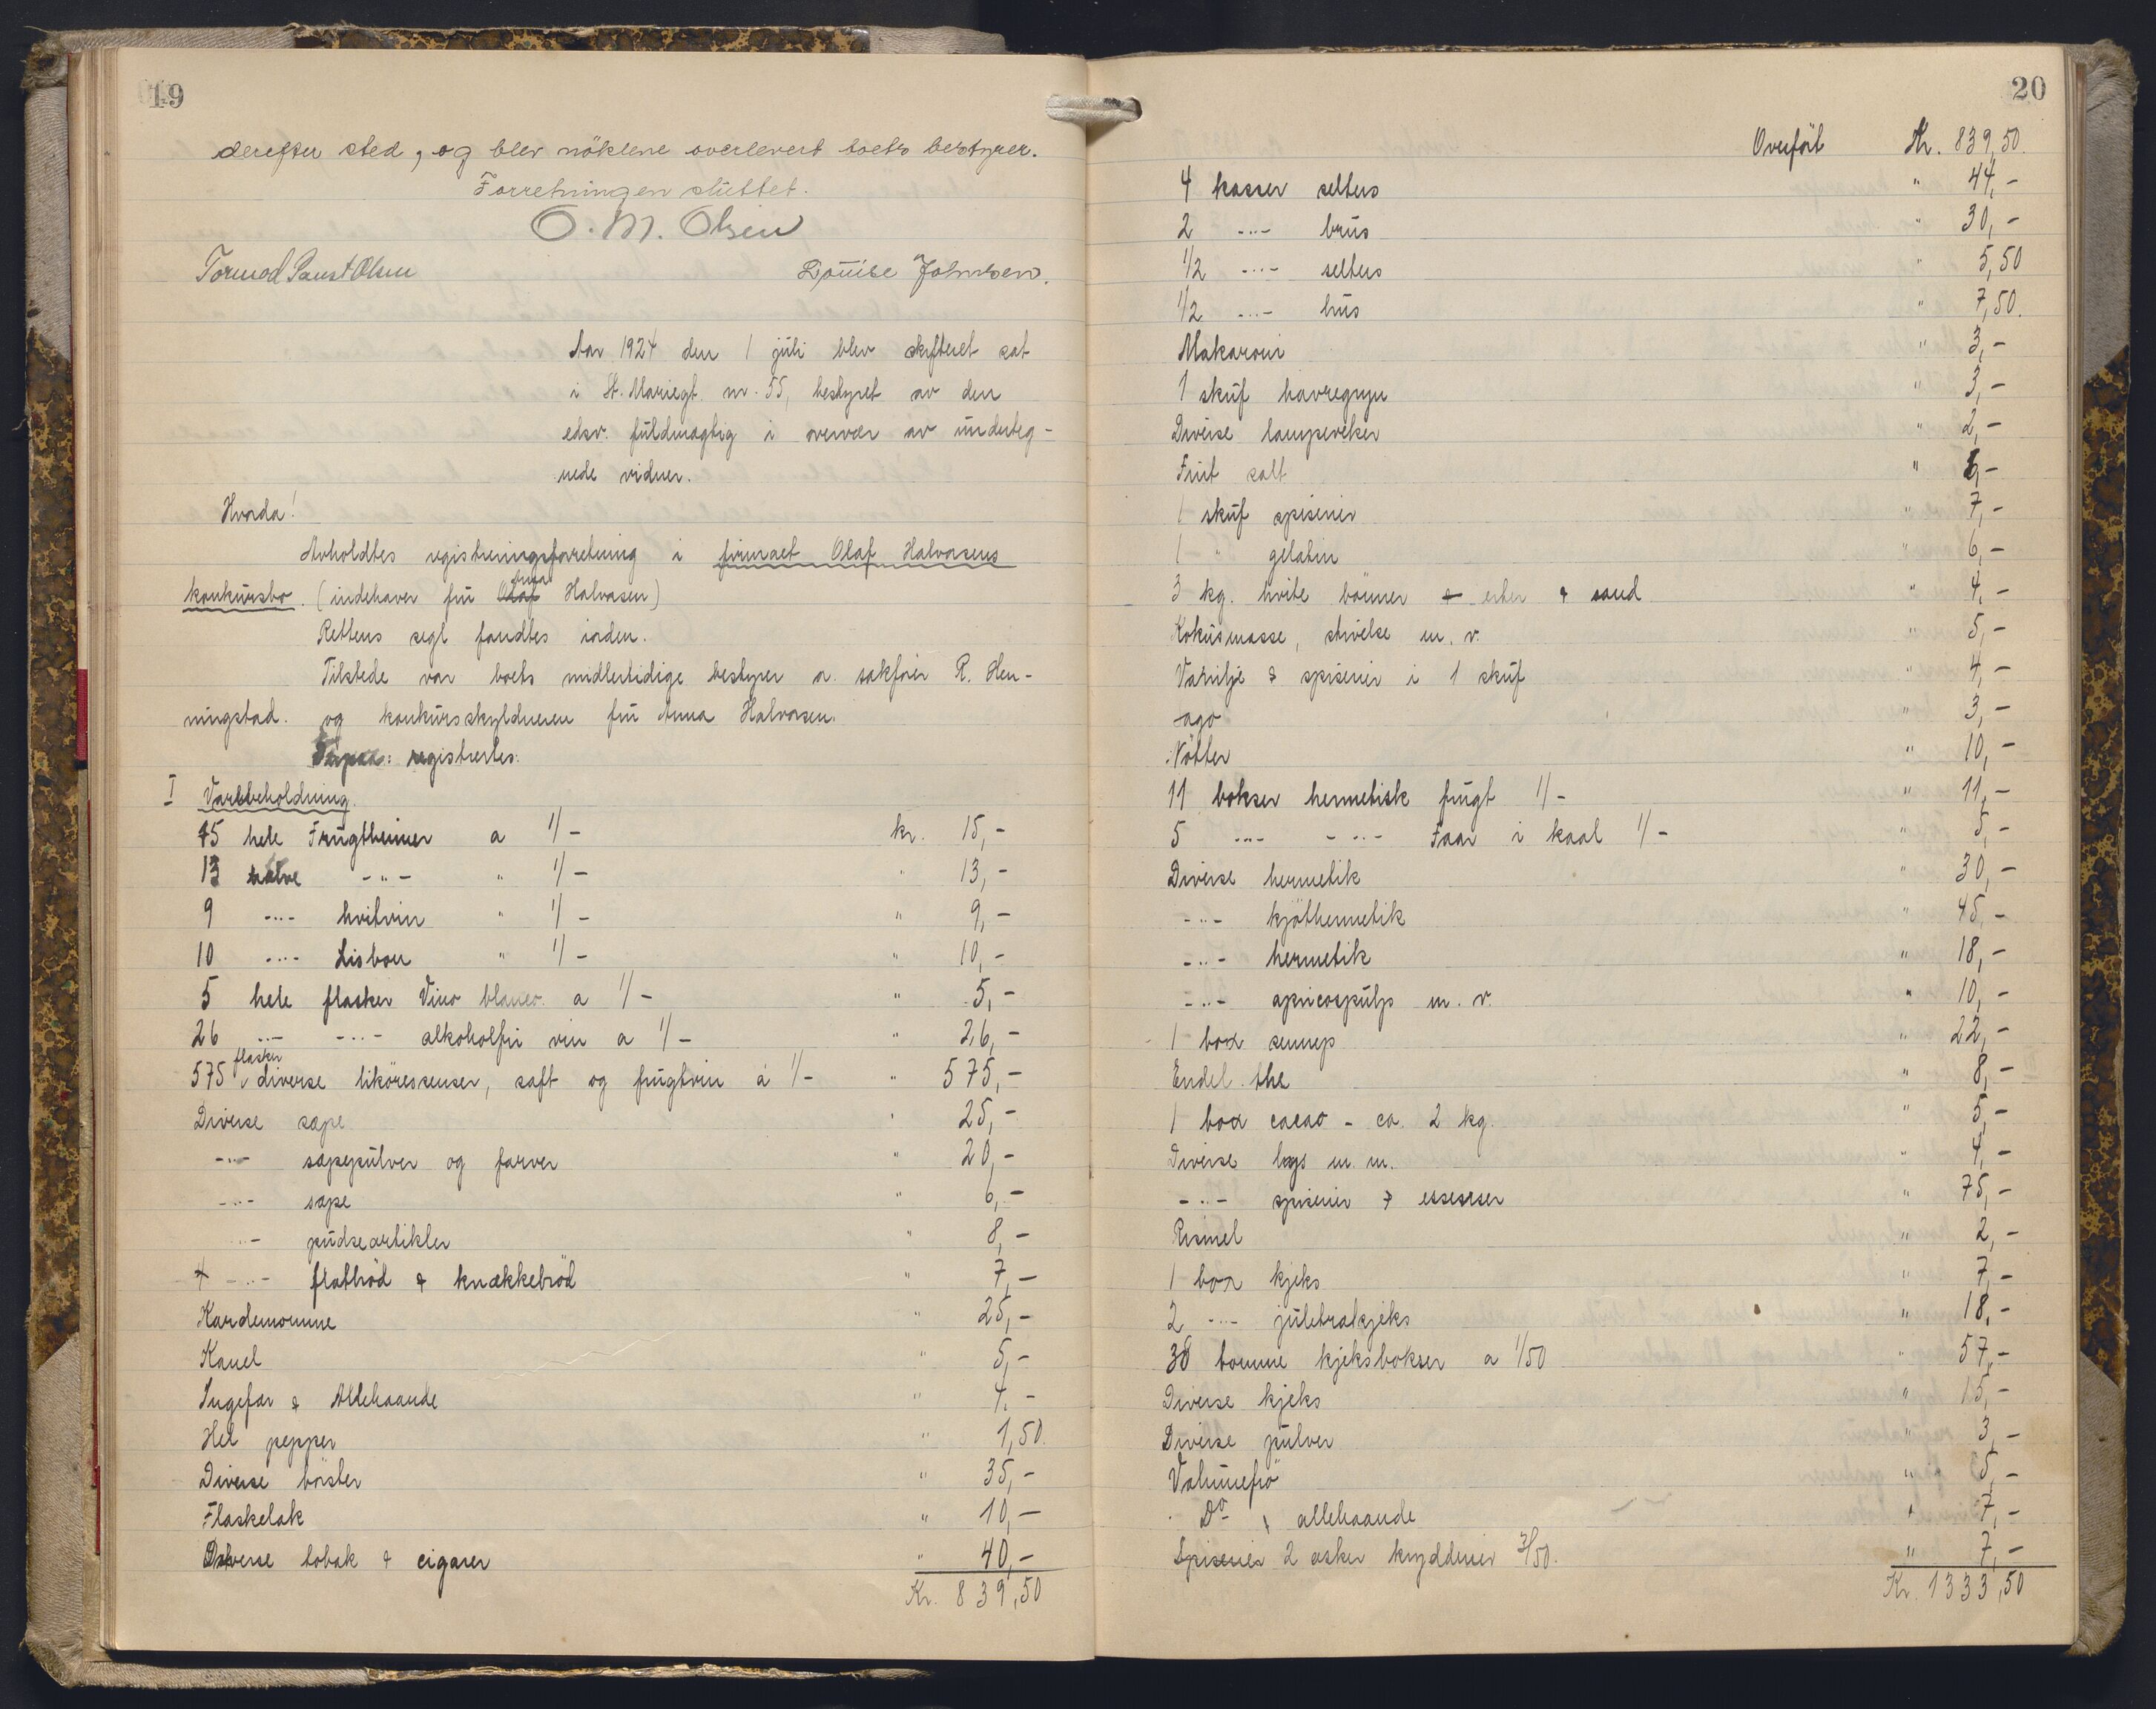 19
derefter sted, og blev nöklene overlevert boets bestyrer.
Forretningen sluttet.
O. M. Olsen
Tormod Olsen Louise Johnsen.
Aar 1924 den 1 juli blev skifteret sat
i St. Mariegt. nr. 55, bestyret av den
edsv. fuldmægtig i overvær av underteg-
nede vidner.
Hvorda!
Avholdtes registreringsforretning i firmaet Olaf Halvorsens
konkursbo. (indehaver fru Olaf Anna Halvorsen)
Rettens segl fandtes inden.
Tilstede var boets midlertidige bestyrer o. sakfører R. Hen-
ningstad. og konkursskyldneren fru Anna Halvorsen.
registrertes:
I Varebeholdning.
15 hele Frugtheimer a 1/- kr. 15,-
13 halve -"- " 1/- " 13,-
9 -"- hvitvin " 1/- " 9,-
10 -"- Lisbon " 1/- " 10,-
5 hele flasker Vino blanco a 1/- " 5,-
26 -"- -"- alkoholfri vin a 1/- " 26,-
575 flasker diverse likøressenser, saft og frugtvin á 1/- " 575,-
Diverse sæpe " 25,-
-"- sæpepulver og farver " 20,-
-"- sæpe " 6,-
-"- pudseartikler " 8,-
-"- flatbröd & knækkebröd " 7,-
Kardemomme " 25,-
Kanel " 5,-
Ingefær & Allehaande " 4,-
Hel pepper " 1,50.
Diverse börster " 35,-
Flaskelak " 10,-
Diverse tobak & cigarer " 40,-
Kr. 839,50
20
Overfört Kr. 839,50.
4 kasser selters " 44,-
2 -"- brus " 30,-
1/2 -"- selters " 5,50
1/2 -"- brus " 7,50.
Makaroni " 3,-
1 skuf havregryn " 3,-
Diverse lampeveker " 2,-
Fruit salt "
1 skuf spiserier " 7,-
1 " gelatin " 6,-
3 kg. hvite bönner & erter & sand " 4,-
Kokusmasse, stivelse m. v. " 5,-
Vanilje & spiserier i 1 skuf " 4,-
ago " 3,-
Nötter " 10,-
11 bokser hermetisk frugt 1/- " 11,-
5 -"- -"- Faar i kaal 1/- " 5,-
Diverse hermetik " 30,-
-"- kjöthermetik " 45,-
-"- hermetik " 18,-
-"- apricospulp m. v. " 10,-
1 box sennep " 22,-
Endel the " 8,-
1 box cacao - ca. 2 kg. " 5,-
Diverse lys m. m. " 4,-
-"- spiserier & essesser " 75,-
Rismel " 2,-
1 box kjeks " 7,-
2 -"- juletrækjeks " 18,-
38 tomme kjeksbokser a 1/50 " 57,-
Diverse kjeks " 15,-
Diverse pulver " 3,-
Valmuefrö " 5,-
Do & allehaande " 7,-
Spiserier 2 æsker krydderier 3/50. " 7,-
Kr. 1333,50